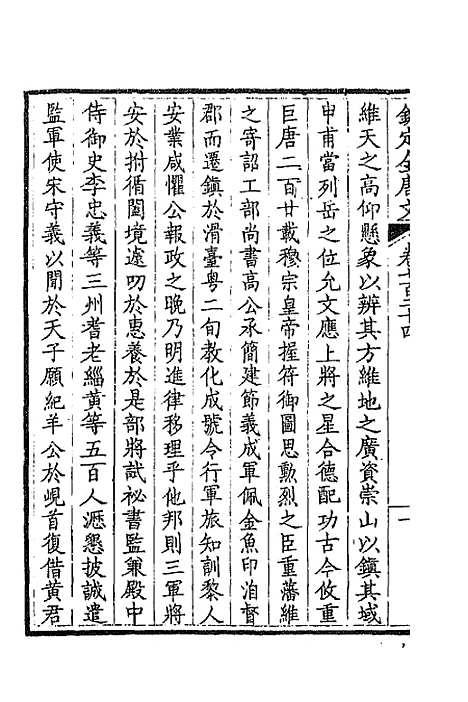 欽定全唐文 卷七百二十四 一
維天之高仰懸象以辨其方維地之廣資崇山以鎮其域
申甫當列岳之位允文應上將之星合德配功古今攸重
巨唐二百廿載穆宗皇帝握符御圖思勲烈之臣重藩維
之寄詔工部尚書高公承簡建節義成軍佩金魚印洎督
郡而遷鎮於滑臺粤二旬教化成號令行軍旅知訓黎人
安業咸懼公報政之晚乃明進律移理乎他邦則三軍將
安於拊循闔境遽叨於惠養於是部將試祕書監兼殿中
侍御史李忠義等三州耆老緇黄等五百人瀝懇披誠遣
監軍使宋守義以聞於天子願紀羊公於峴首復借黄君